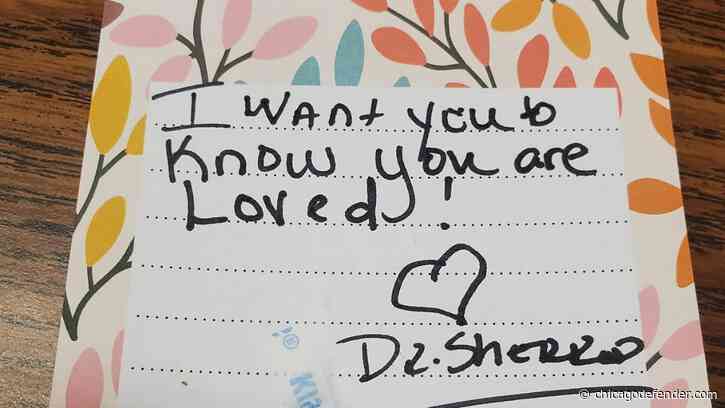 I WANt you to
Know you are
Loved!
Dr. SHERRO
Kla
© chicagodefender.com